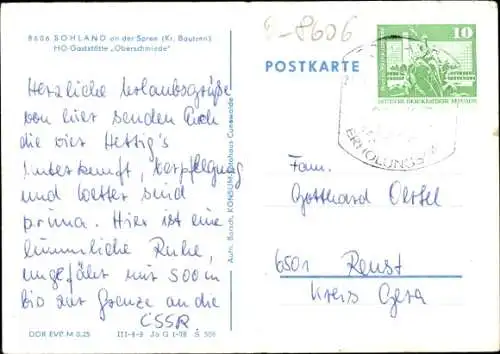 8606 SOHLAND an der Spree (Kr. Bautzen)
HO-Gaststätte „Oberschmiede"
Herzliche Urlaubsgrüße
von hier senden Euch
die vier Hettig's
Unterkunft, Verpflegung
und Wetter sind
prima. Hier ist eine
himmliche Ruhe,
ungefähr nur 500 m
bis zur Grenze an die
ČSSR.
DDR EVP M 0,25 III-4-9 Jb G 1-78 S
Aufn. Borsch, KONSUM-Fotohaus Cunewalde
8606
POSTKARTE
10
DEUTSCHE DEMOKRATISCHE REPUBLIK
ERHOLUNGS
Fam.
Gotthard Oertel
6501 Reust
Kreis Gera